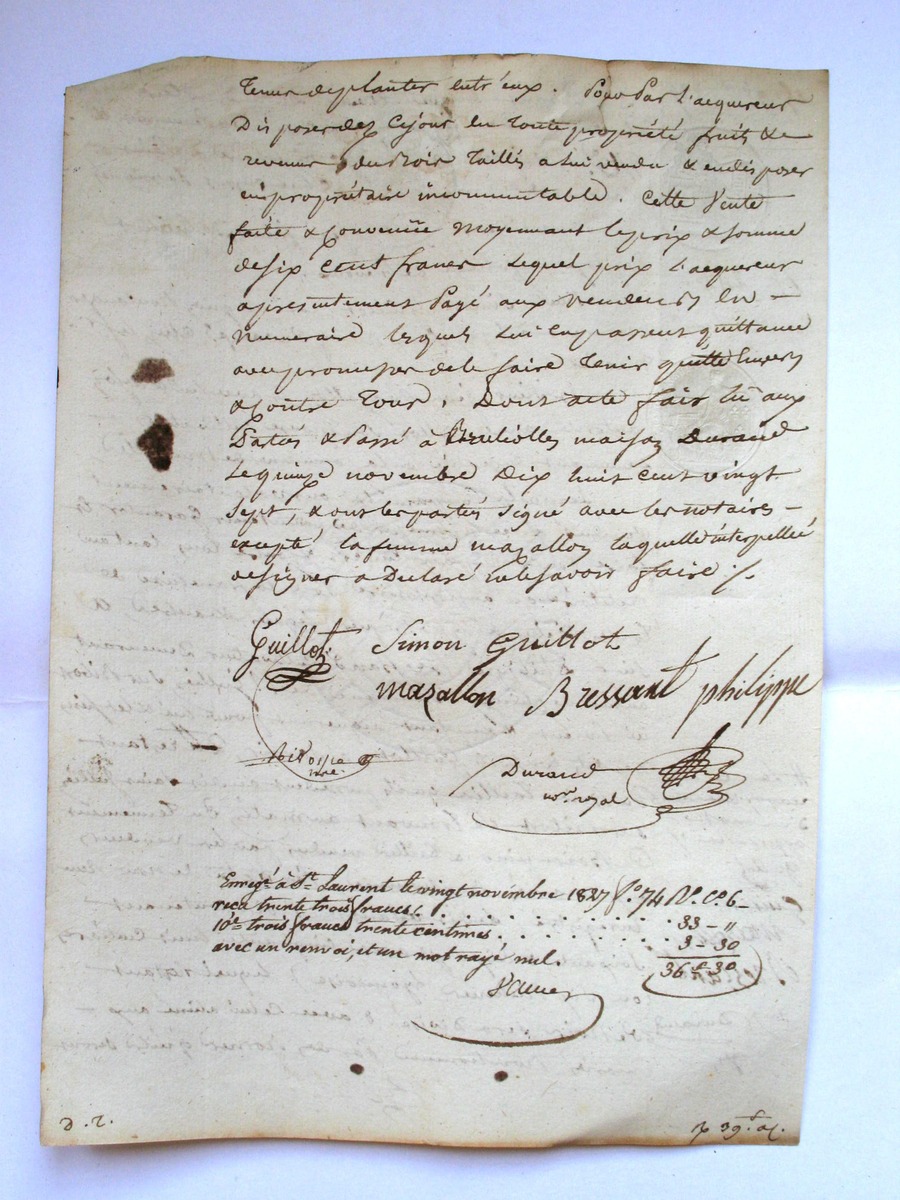 tenus de planter entr'eux. Pour Par L'acquereur
Disposer dez Cejour En Toute propriété fruits & 
revenus du Bois Taillis a lui vendu & en disposer
en propriétaire incommutable. Cette Vente
faite & Convenüe moyennant le prix & somme
de six Cent francs Lequel prix L'acquereur
a presentement Payé aux vendeurs En –
Numeraire lesquels Lui En passent quittance
avec promesse de le faire Tenir quitte Envers
& Contre Tous. Dont acte fait lû aux
Parties & Passé à maison Durand
Le quinze novembre Dix huit cent vingt
sept, & ont les parties signé avec les notaires –
excepté la femme mazallon laquelle interpellée
de signer a Declaré ne le savoir faire ./.
Guillot Simon Guillot
mazallon Bressant philippe
Durand
no.re royal
Enreg.é à S.t Laurent le vingt novembre 1827 f.o 74 R.o C.es 6 –
reçu trente trois francs. 33 – "
10.e trois francs trente centimes 3 – 30
avec un renvoi, et un mot rayé nul. 36 f 30
D. 2.